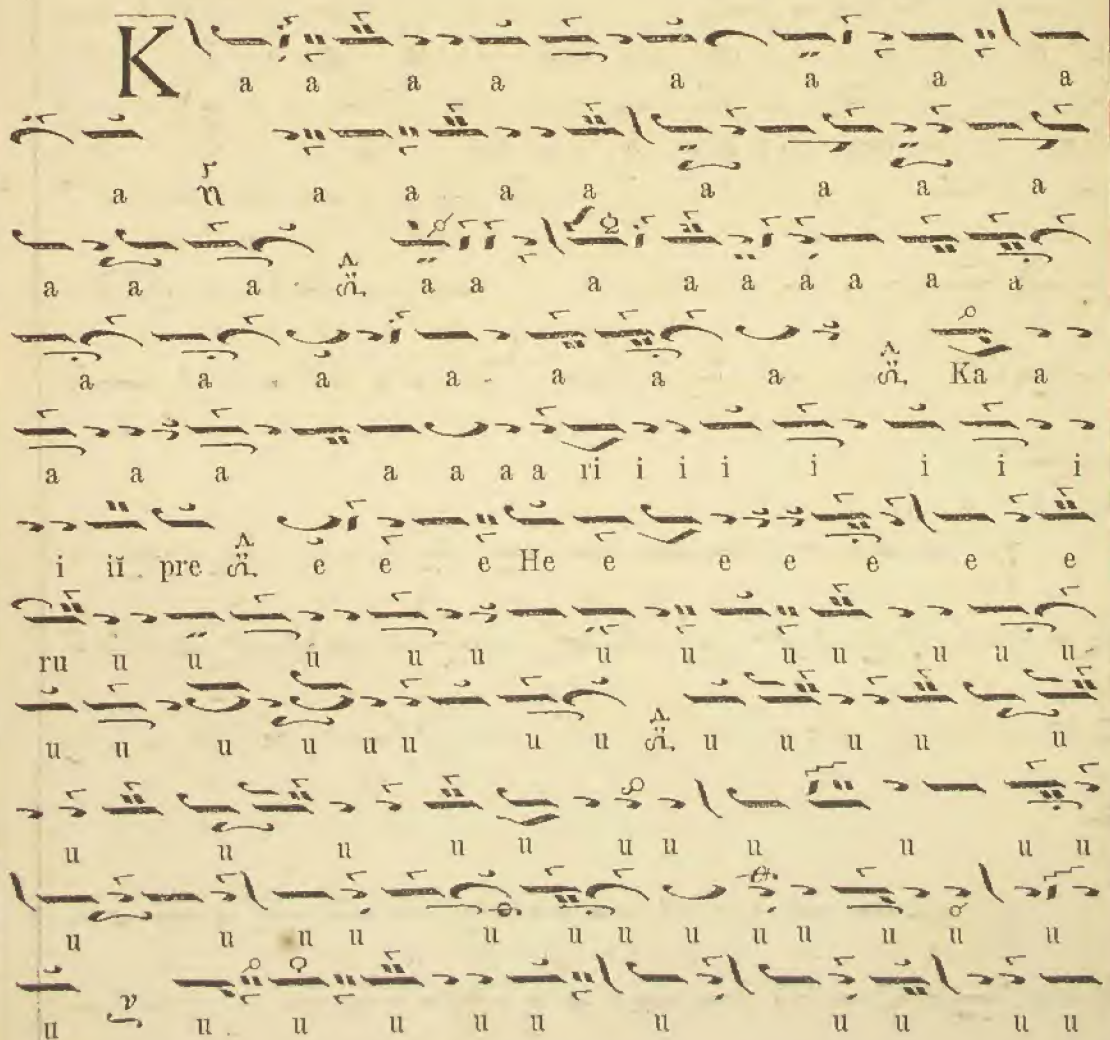 K a a a a a a a a
a a a a a a a a a
a a a a a a a a a a a
a a a a a a a Ka a
a a a a a a a ri i i i i i i i
i iĭ pre e e e He e e e e e e
ru u u u u u u u u u u u u
u u u u u u u u u u u u u
u u u u u u u u u u u
u u u u u u u u u u u u
u u u u u u u u u u u